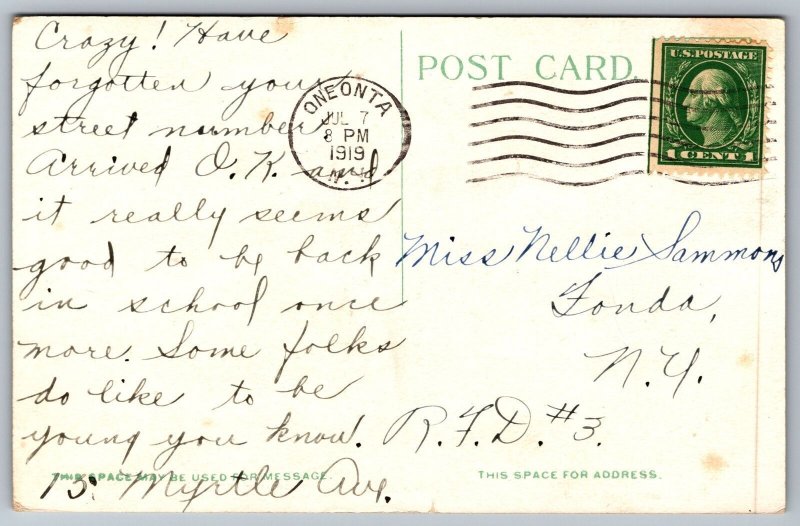 Crazy! Have
forgotten your
street number
Arrived O.K. and
it really seems
good to be back
in school once
more. Some folks
do like to be
young you know.
15 Myrtle Ave.
THIS SPACE MAY BE USED FOR MESSAGE.
POST CARD
ONEONTA
JUL 7
8 PM
1919
N.Y.
U.S. POSTAGE
1 CENT 1
Miss Nellie Sammons
Fonda,
N.Y.
R.F.D. #3.
THIS SPACE FOR ADDRESS.